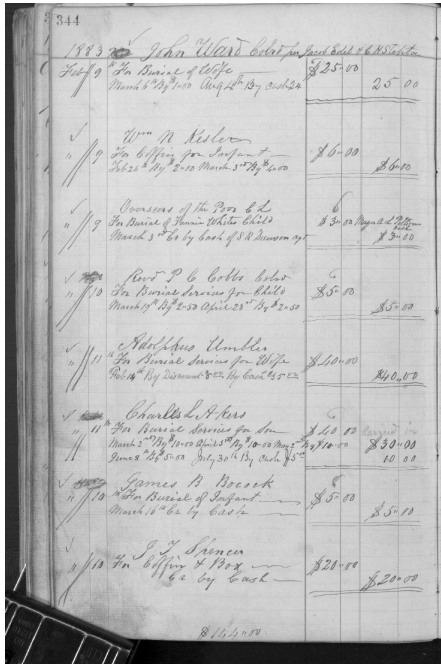 344
1883 John Ward Cold per Jacob Edel & C H Slaton
Feby 9 th For Burial of Wife $25.00
March 6th By $1.00 Aug 4th By Cash 24 25 00
Wm N Kesler
" 9 For Coffin for Infant $6.00
Feb 26th By $2.00 March 3rd By $4.00 $6.00
Overseers of the Poor C L
" 9 For Burial of Fannie White Child $3.00
March 3rd Cr by Cash of S R $3.00
Revd P C Cobbs Cold
" 10 For Burial Services for Child $5.00
March 19th By $2.50 April 23rd By $2.50 $5.00
Adolphus Umbler
" 11 th For Burial Services for Wife $40.00
Feb 14th By Discount By Cash $40.00
Charles L Akers
" 11 th For Burial Services for Son $40.00
March 3rd By $10.00 April 5th By $10.00 May 2nd By $10.00 $30.00
June 8th By $5.00 July 30th By Cash $5.00 10 00
James B Bocock
" 10 th For Burial of Infant $5.00
March 16th Ca by Cash $5.00
J T Spencer
" 10 For Coffin & Box $20.00
Ca by Cash $20.00
$144.00